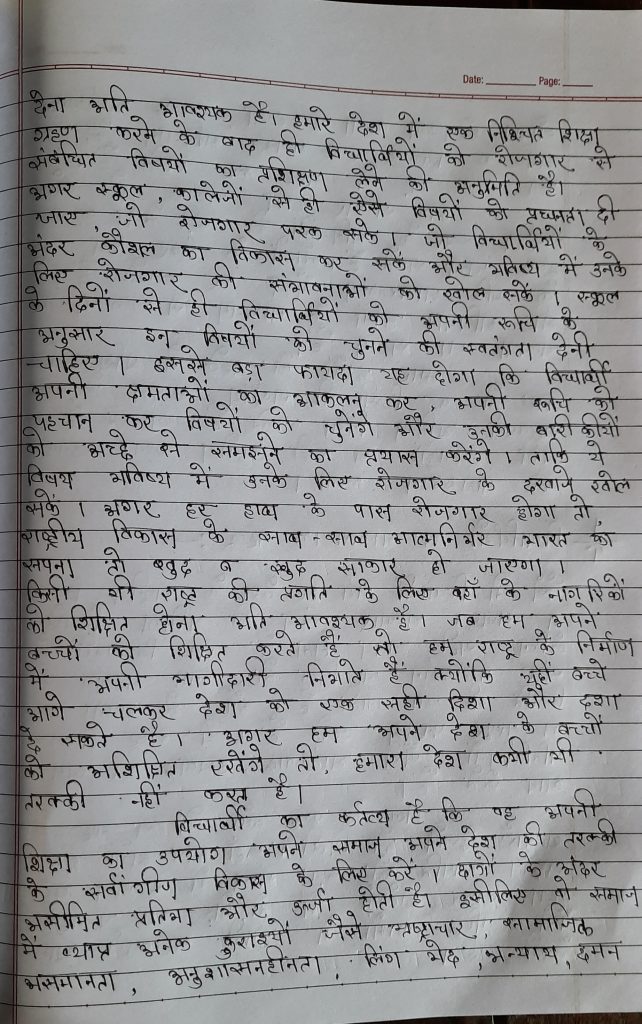 Date: ________ Page: ____
देना अति आवश्यक है। हमारे देश में एक निश्चित शिक्षा
ग्रहण करने के बाद ही विद्यार्थियों को रोजगार से
संबंधित विषयों का प्रशिक्षण लेने की अनुमिति है।
अगर स्कूल, कालेजों से ही ऐसे विषयों को प्रधानता दी
जाए, जो रोजगार परक सके। जो विद्यार्थियों के
अंदर कौशल का विकास कर सकें और भविष्य में उनके
लिए रोजगार की संभावनाओं को खोल सकें। स्कूल
के दिनों से ही विद्यार्थियों को अपनी रूचि के
अनुसार इन विषयों को चुनने की स्वतंत्रता देनी
चाहिए। इससे बड़ा फायदा यह होगा कि विद्यार्थी
अपनी क्षमताओं का आकलन कर, अपनी रूचि को
पहचान कर विषयों को चुनेंगे और उनकी बारीकीयों
को अच्छे से समझने का प्रयास करेंगे। ताकि ये
विषय भविष्य में उनके लिए रोजगार के दरवाजे खोल
सकें। अगर हर हाथ के पास रोजगार होगा तो,
राष्ट्रीय विकास के साथ-साथ आत्मनिर्भर भारत का
सपना तो खुद ब खुद साकार हो जाएगा।
किसी भी राष्ट्र की प्रगति के लिए वहाँ के नागरिकों
को शिक्षित होना अति आवश्यक है। जब हम अपने
बच्चों को शिक्षित करते हैं तो हम राष्ट्र के निर्माण
में अपनी भागीदारी निभाते हैं क्योंकि यहीं बच्चे
आगे चलकर देश को एक सही दिशा और दशा
दे सकते है। अगर हम अपने देश के बच्चों
को अशिक्षित रखेंगे तो, हमारा देश कभी भी
तरक्की नहीं करता है।
विद्यार्थी का कर्तव्य है कि वह अपनी
शिक्षा का उपयोग अपने समाज अपने देश की तरक्की
के सर्वांगीण विकास के लिए करें। छात्रों के अंदर
असीमित प्रतिभा और ऊर्जा होती है। इसीलिए वो समाज
में व्याप्त अनेक बुराइयों जैसे भ्रष्टाचार, सामाजिक
असमानता, अनुशासनहीनता, लिंग भेद, अन्याय, दमन